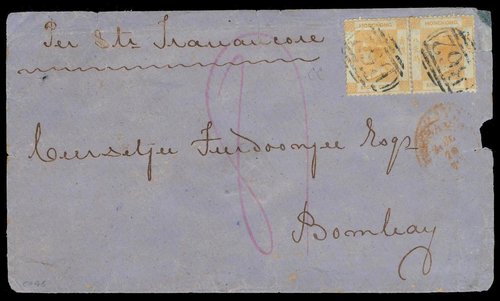 Per Str Travancore
HONGKONG HONGKONG
B62
Cursetjee Furdoonjee Esqr
8
Bombay